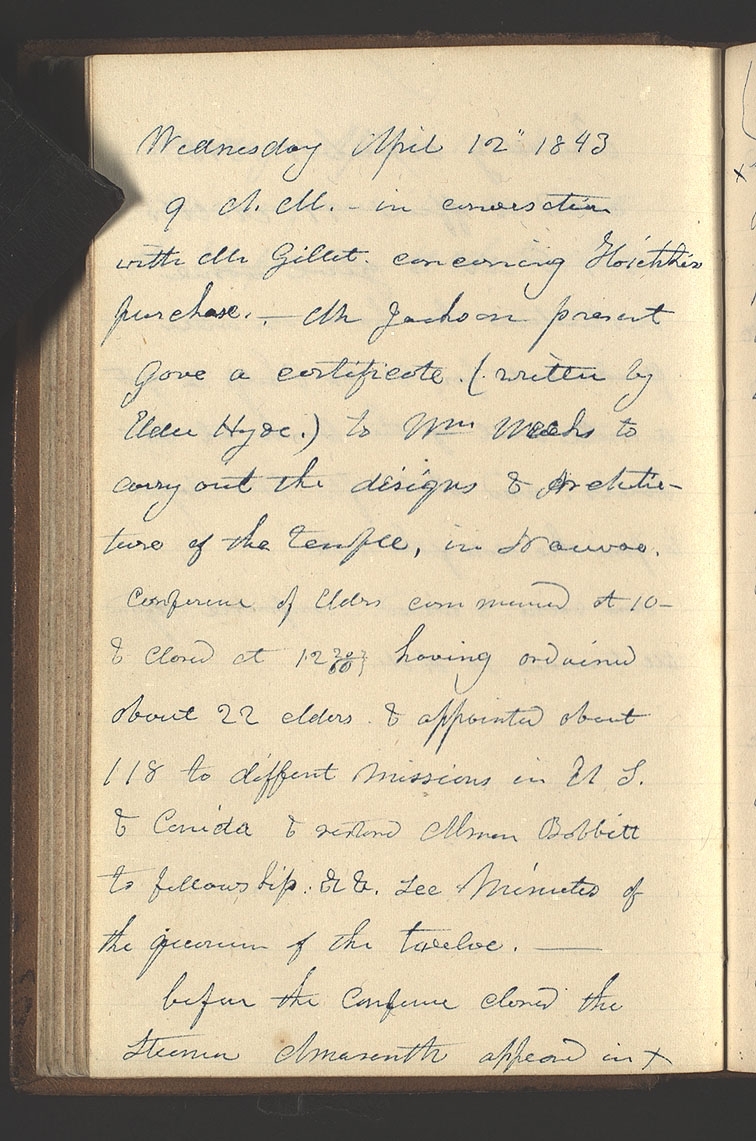 Wednesday April 12" 1843
9 A. M. - in conversation
with Mr Gillet. concerning Hotchkiss
purchase. — Mr Jackson present
Gave a certificate. (written by
Elder Hyde.) to Wm Weeks to
carry out the designs & Architec-
ture of the temple, in Nauvoo.
Conference of Elders commenced at 10-
& closed at 12 30/60 having ordained
about 22 elders. & appointed about
118 to diffent missions in U S.
& Canida & restored Almon Babbitt
to fellowship. &c &c. See Minutes of
the quorum of the twelve. —
before the Conference closed the
Steemer Amaranth appeard in +